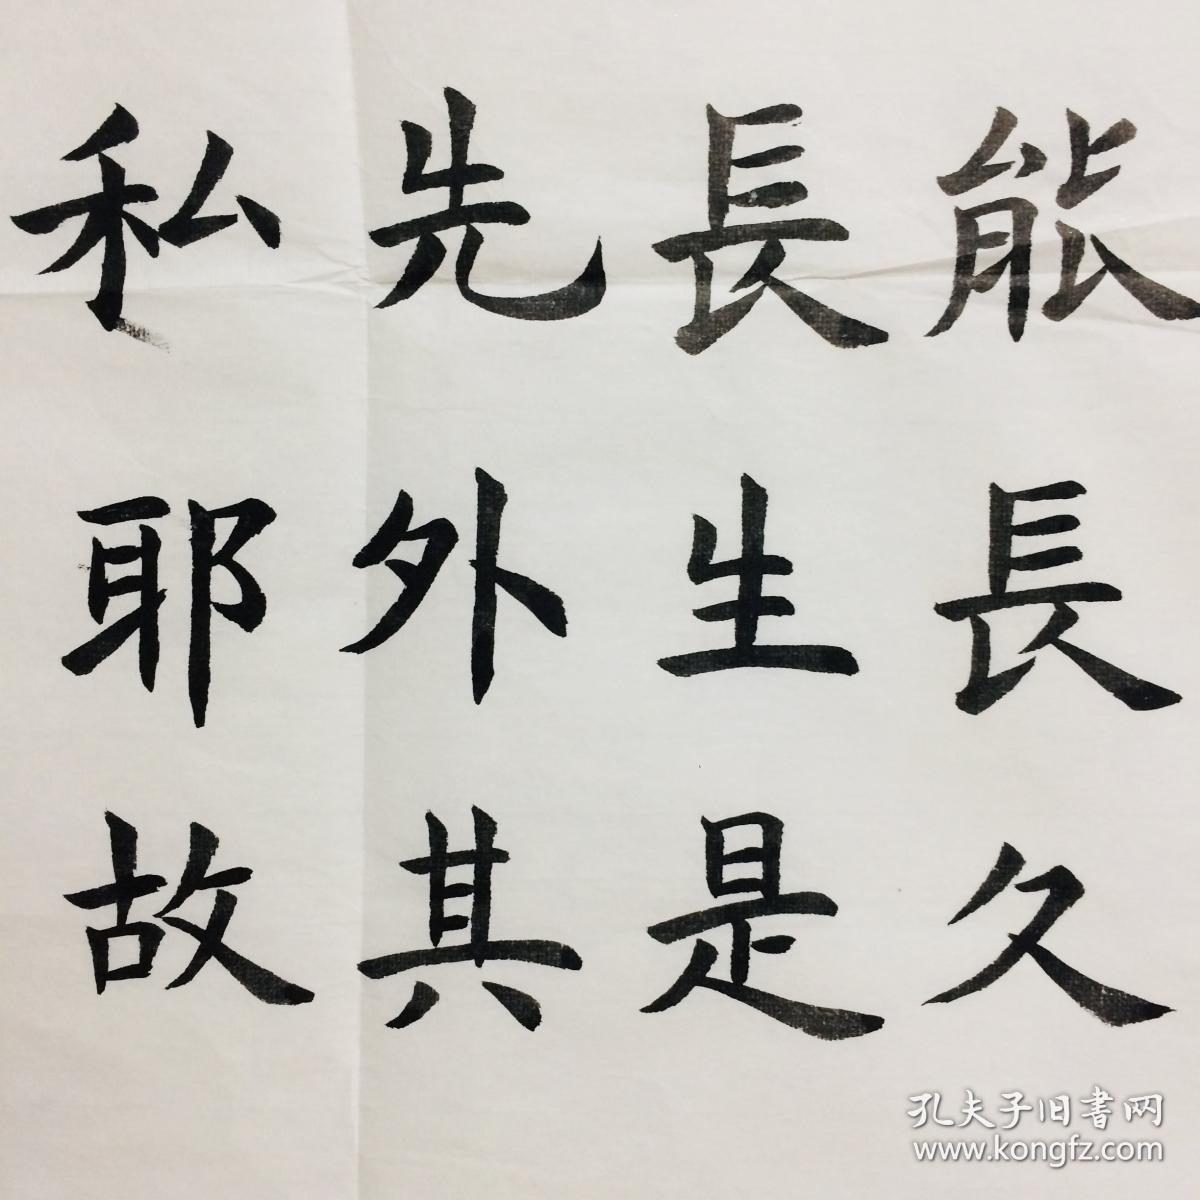 能長久
長生是
先外其
私耶故
孔夫子旧書网
www.kongfz.com